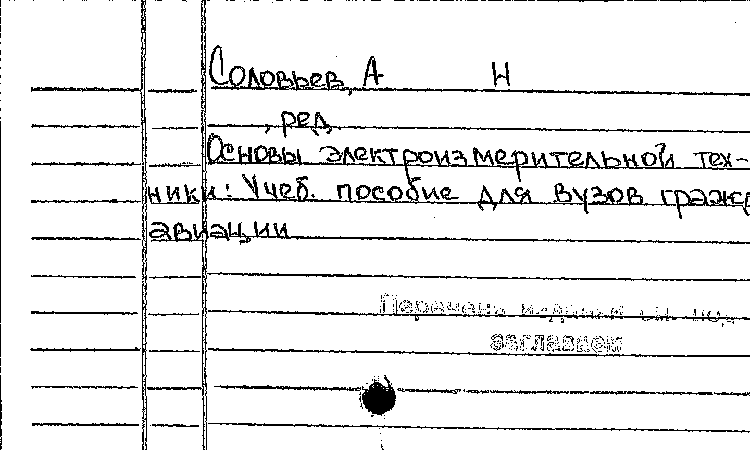 Соловьев, А Н
, ред
Основы электроизмерительной тех-
ники: Учеб. пособие для вузов гражд
авиации
Перечень изданий см. под
заглавием